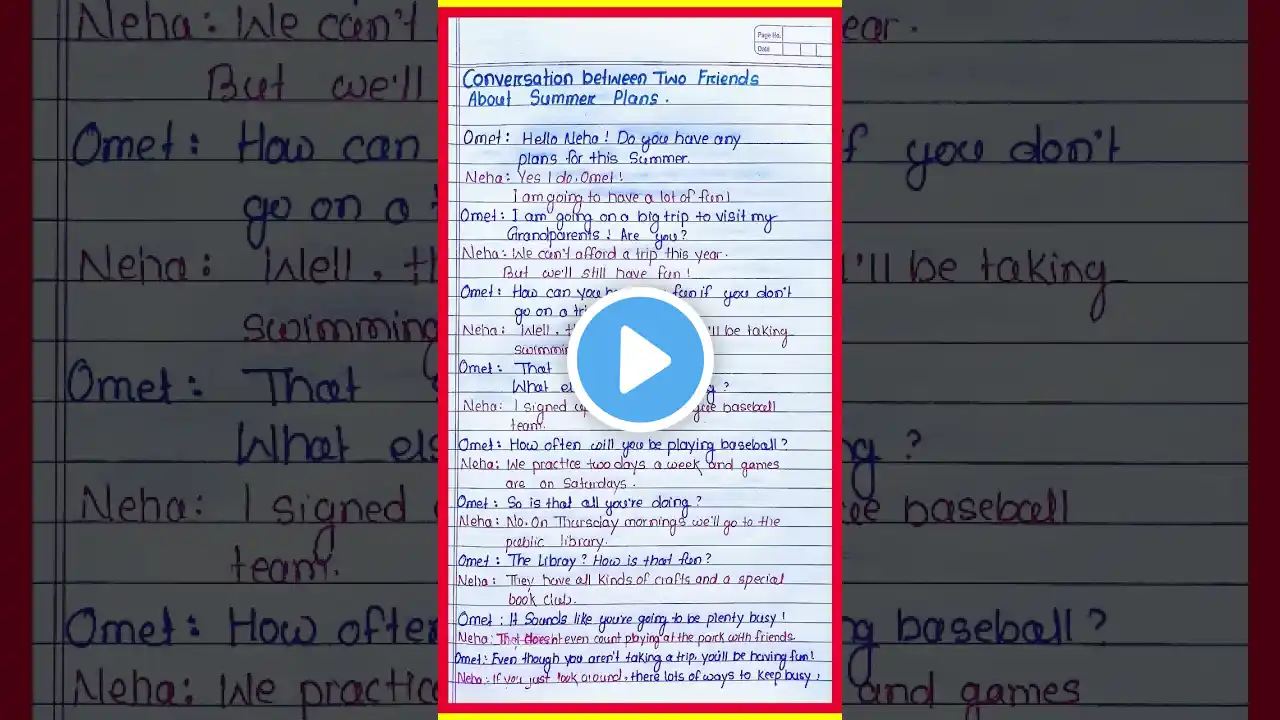 Neha: We can't
But we'll
Omet: How can
go on a
Neha: Well, th
swimming
Omet: That
What els
Neha: I signed
team.
Omet: How ofte
Neha: We practic
Page No.
Date
Conversation between Two Friends
About Summer Plans.
Omet: Hello Neha! Do you have any
plans for this Summer.
Neha: Yes I do, Omet!
I am going to have a lot of fun!
Omet: I am going on a big trip to visit my
Grandparents! Are you?
Neha: We can't afford a trip this year.
But we'll still have fun!
Omet: How can you fun if you don't
go on a tri
Neha: Well, th 'll be taking
swimmin
Omet: That
What els g?
Neha: I signed up gue baseball
team.
Omet: How often will you be playing baseball?
Neha: We practice two days a week and games
are on Saturdays.
Omet: So is that all you're doing?
Neha: No. On Thursday mornings we'll go to the
public library.
Omet: The Libray? How is that fun?
Neha: They have all kinds of crafts and a special
book club.
Omet: It Sounds like you're going to be plenty busy!
Neha: That doesn't even count playing at the park with friends
Omet: Even though you aren't taking a trip, you'll be having fun!
Neha: If you just look around, there lots of ways to keep busy,
ear.
f you don't
'll be taking
g?
ue baseball
ng baseball?
and games